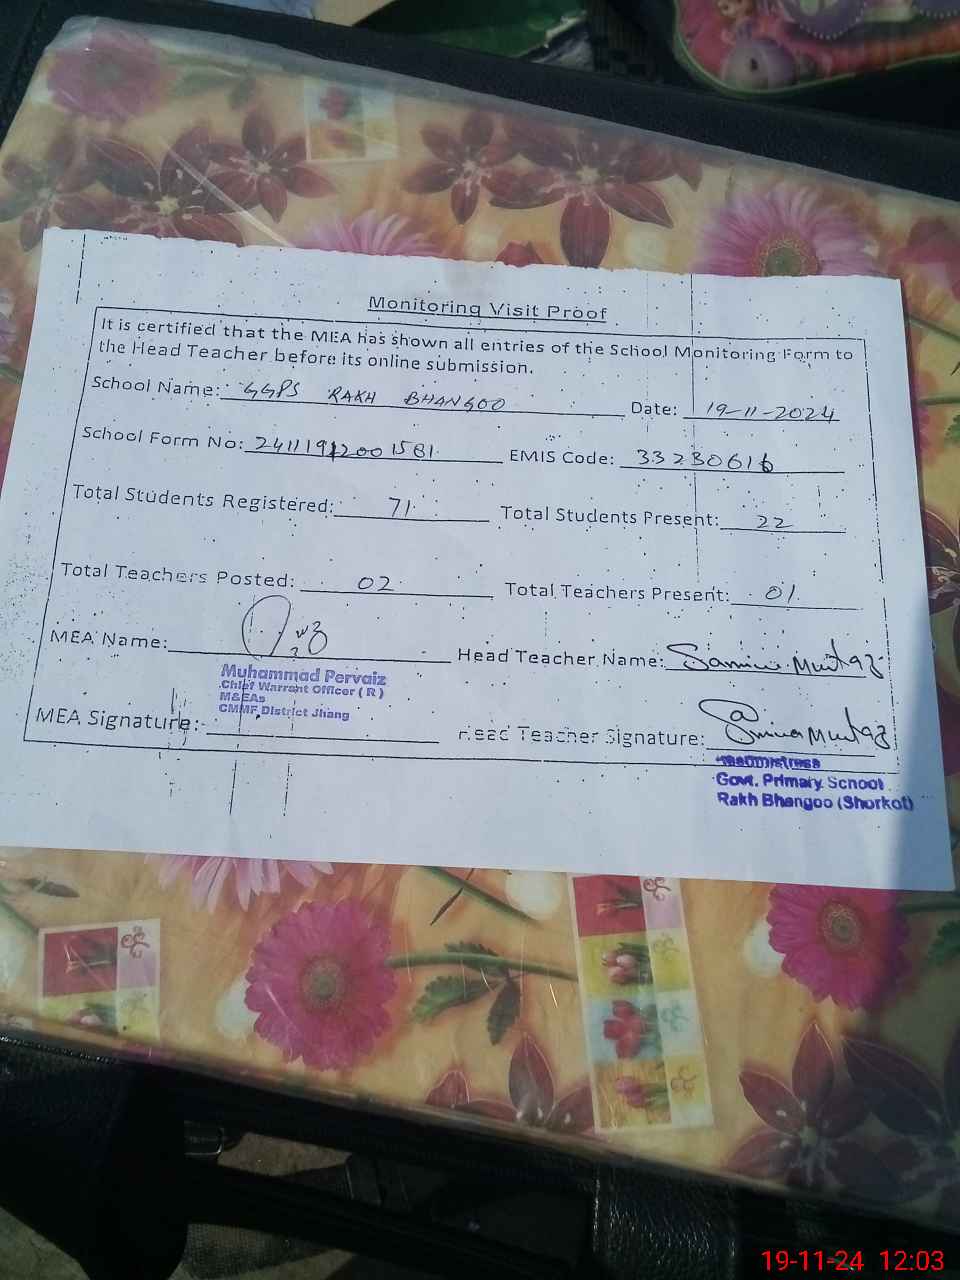 Monitoring Visit Proof
It is certified that the MEA has shown all entries of the School Monitoring Form to
the Head Teacher before its online submission.
School Name: GGPS RAKH BHANGOO Date: 19-11-2024
School Form No: 24111912001581 EMIS Code: 33230616
Total Students Registered: 71 Total Students Present: 22
Total Teachers Posted: 02 Total Teachers Present: 01
MEA Name: Head Teacher Name: Samina Mumtaz
Muhammad Pervaiz
Chief Warrant Officer ( R )
M&EAs
CMMF, District Jhang
MEA Signature: Head Teacher Signature: Samina Mumtaz
Headmistress
Govt. Primary School
Rakh Bhangoo (Shorkot)
19-11-24 12:03